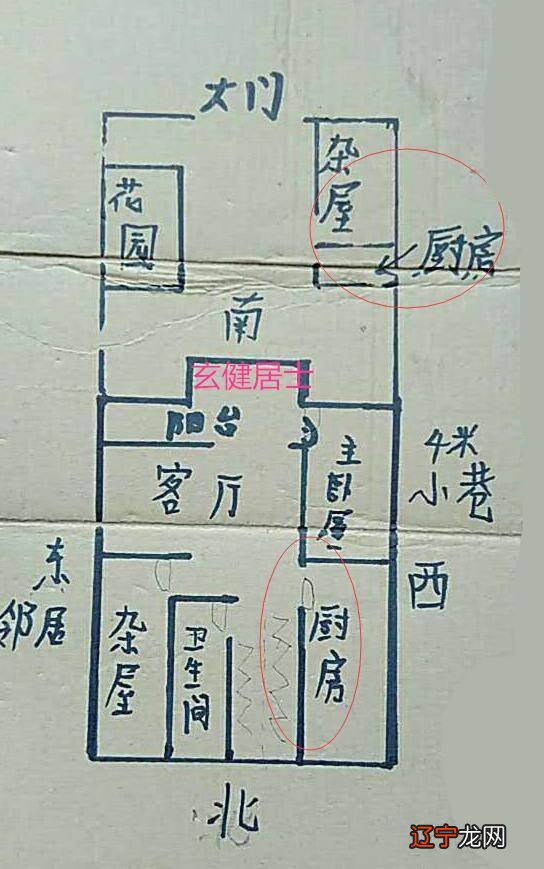 大门
杂屋
花园
厨房
南
玄健居士
阳台
主卧
4米
小巷
客厅
东
邻居
西
杂屋
卫生间
厨房
北
辽宁龙网